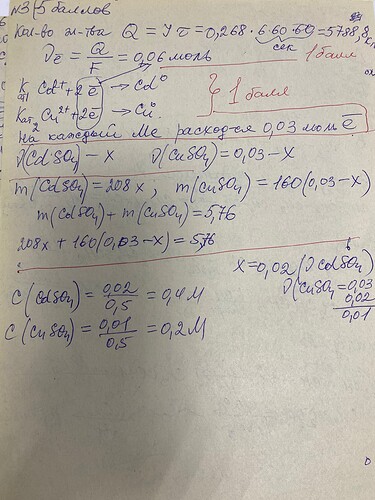 №3 5 баллов
Кол-во эл-тва Q = Iτ = 0,268 · 6·60·60 = 5788,8
сек
νē = Q/F = 0,06 моль
1 балл
K Cd²⁺ + 2ē → Cd⁰
Кат. Cu²⁺ + 2ē → Cu⁰.
1 балл
На каждый Me расход-ся 0,03 моль ē
ν(CdSO₄) – x ν(CuSO₄) = 0,03 – x
m(CdSO₄) = 208x, m(CuSO₄) = 160(0,03 – x)
m(CdSO₄) + m(CuSO₄) = 5,76
208x + 160(0,03 – x) = 5,76
x = 0,02 (ν CdSO₄)
ν(CuSO₄ = 0,03
0,02
0,01
C(CdSO₄) = 0,02/0,5 = 0,4 M
C(CuSO₄) = 0,01/0,5 = 0,2 M